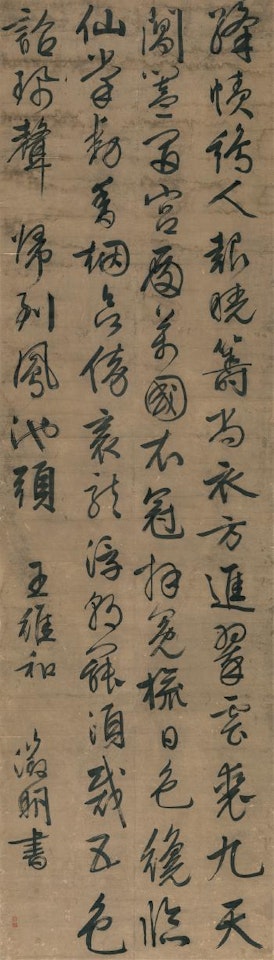 絳幘鷄人報曉籌尚衣方進翠雲裘九天
閶闔開宮殿萬國衣冠拜冕旒日色纔臨
仙掌動香烟欲傍袞龍浮朝罷須裁五色
詔珮聲歸到鳳池頭 王維和 徵明書